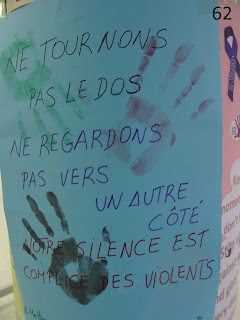 62
NE TOURNONS
PAS LE DOS
NE REGARDONS
PAS VERS
UN AUTRE
CÔTÉ
NOTRE SILENCE EST
COMPLICE DES VIOLENTS